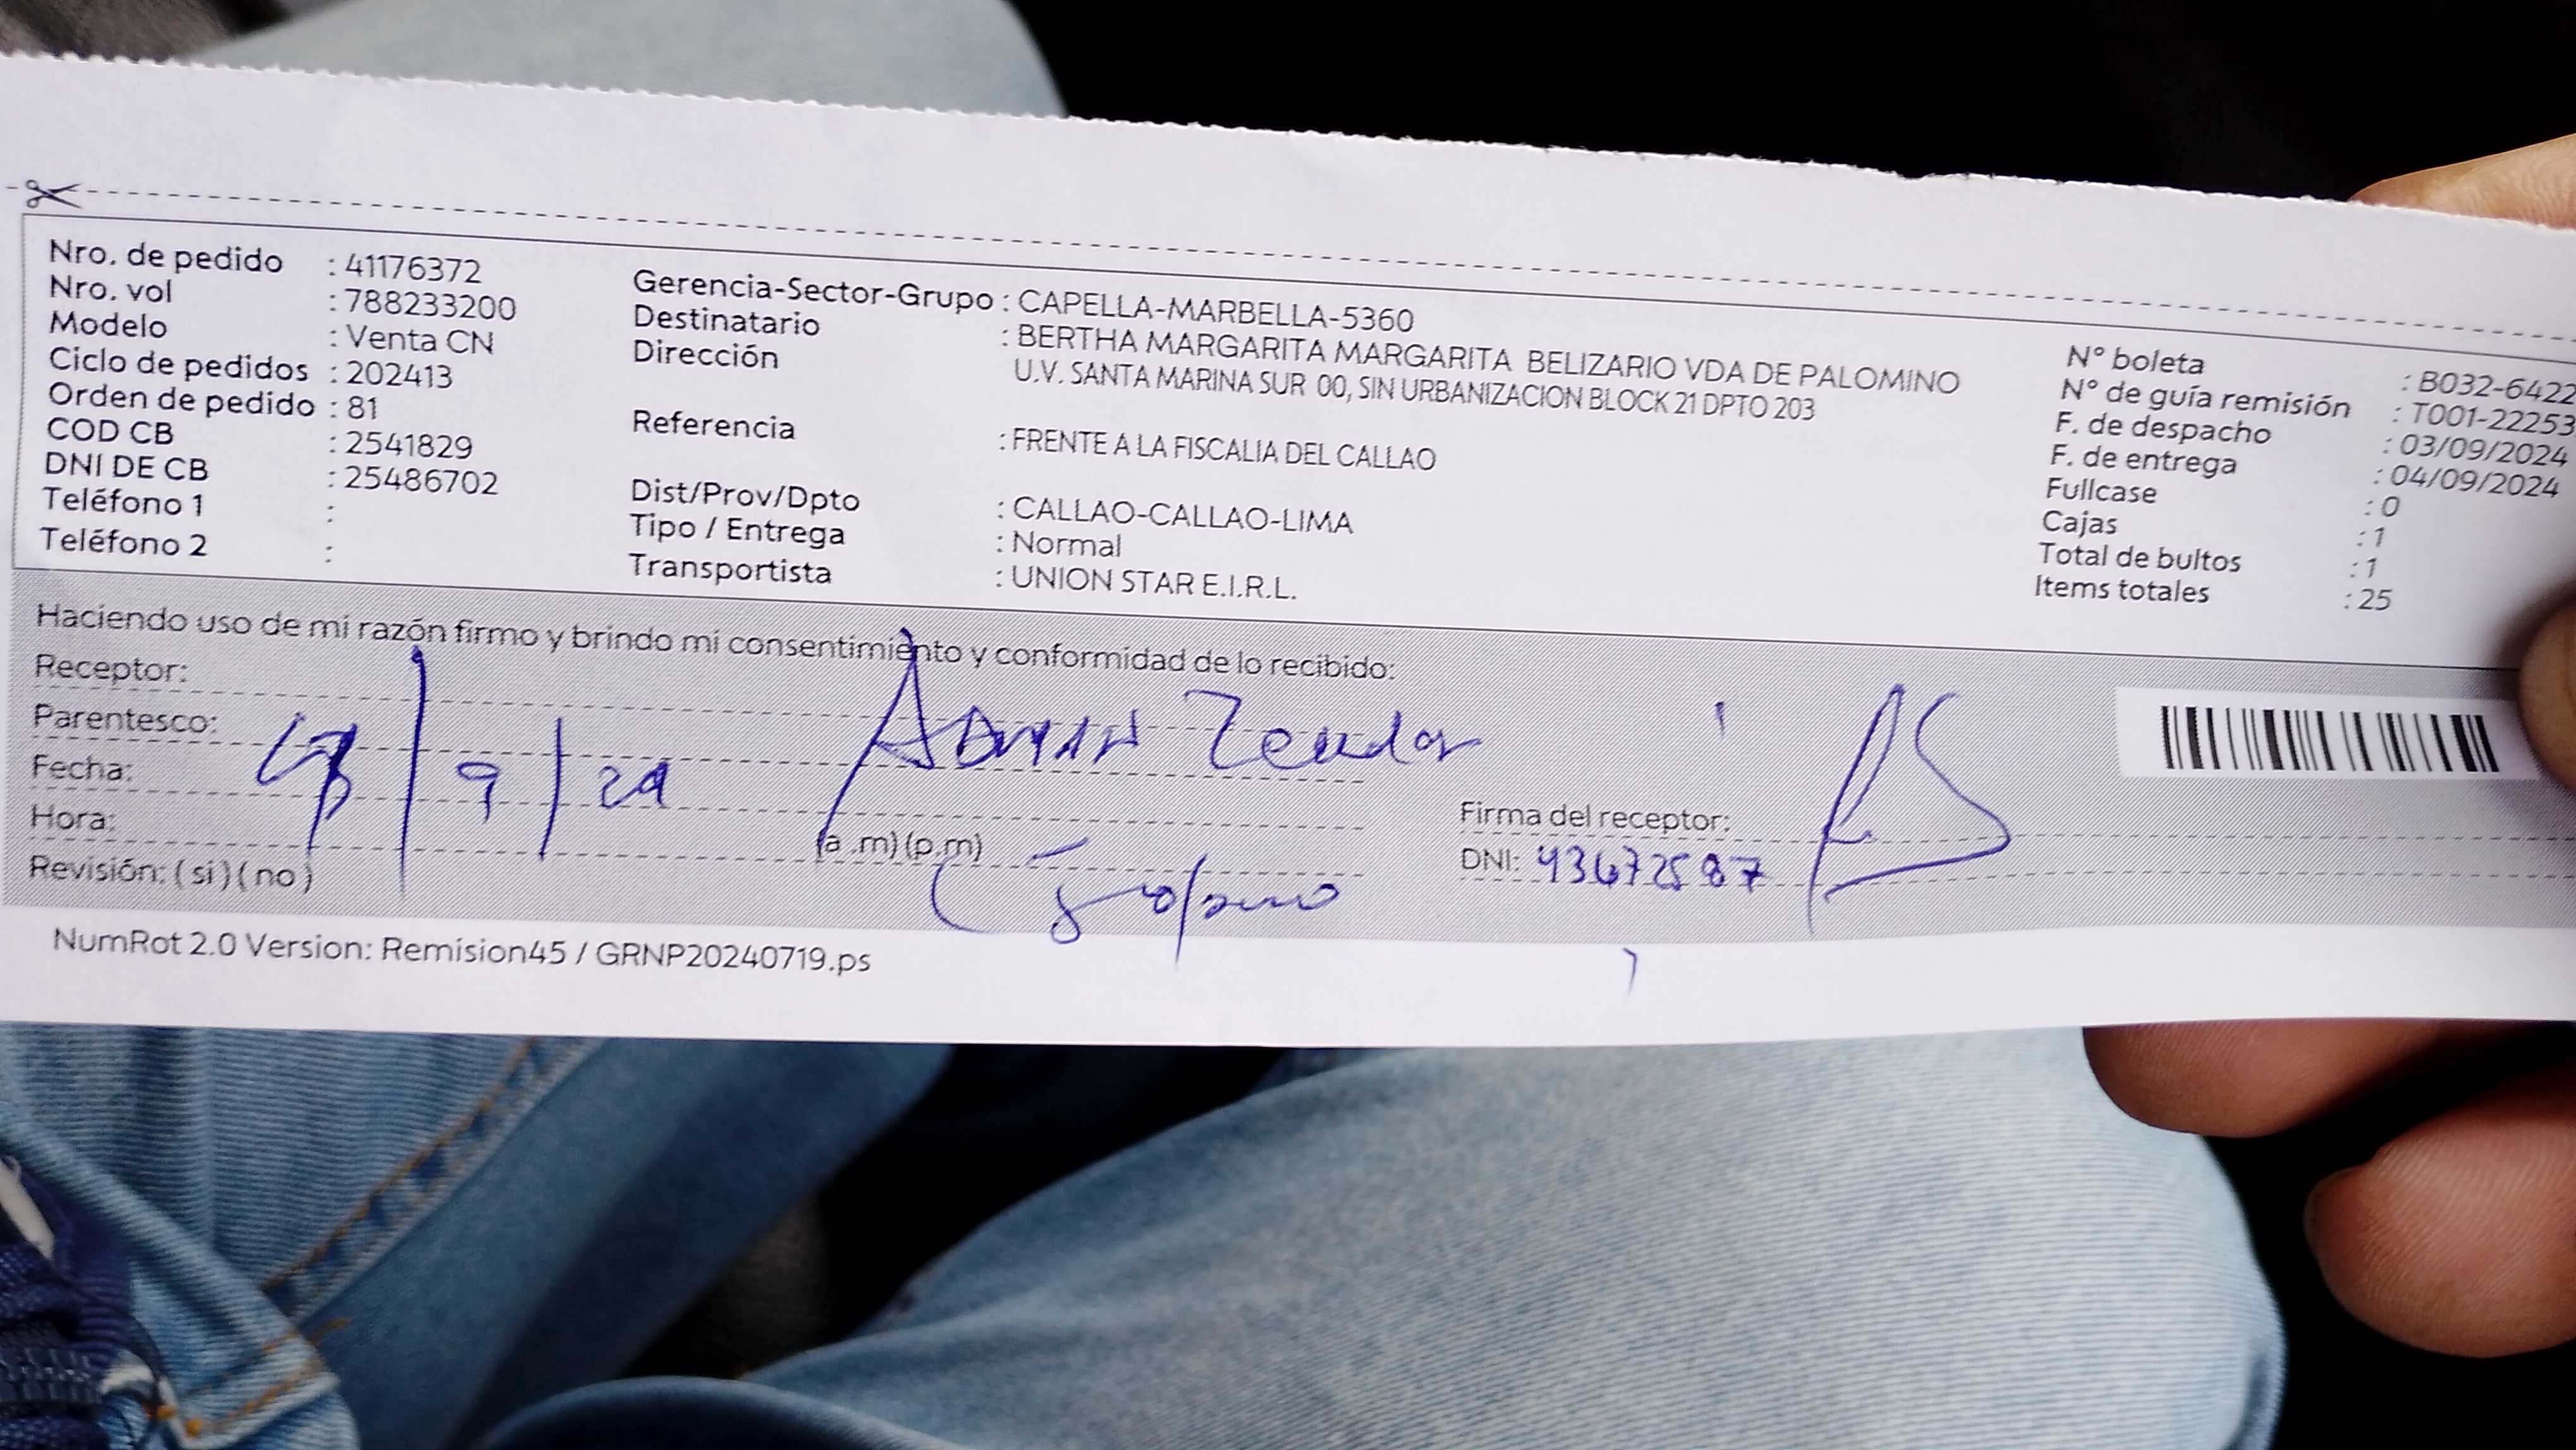 Nro. de pedido : 41176372
Nro. vol : 788233200
Modelo : Venta CN
Ciclo de pedidos : 202413
Orden de pedido : 81
COD CB : 2541829
DNI DE CB : 25486702
Teléfono 1 :
Teléfono 2 :
Gerencia-Sector-Grupo : CAPELLA-MARBELLA-5360
Destinatario : BERTHA MARGARITA MARGARITA BELIZARIO VDA DE PALOMINO
Dirección U.V. SANTA MARINA SUR 00, SIN URBANIZACION BLOCK 21 DPTO 203
Referencia : FRENTE A LA FISCALIA DEL CALLAO
Dist/Prov/Dpto : CALLAO-CALLAO-LIMA
Tipo / Entrega : Normal
Transportista : UNION STAR E.I.R.L.
N° boleta : B032-6422
N° de guía remisión : T001-22253
F. de despacho : 03/09/2024
F. de entrega : 04/09/2024
Fullcase : 0
Cajas : 1
Total de bultos : 1
Items totales : 25
Haciendo uso de mi razón firmo y brindo mi consentimiento y conformidad de lo recibido:
Receptor:
Parentesco:
Fecha: / 9 / 24
Hora: (a.m) (p.m)
Revisión: ( si ) ( no )
Firma del receptor:
DNI: 43672587
NumRot 2.0 Version: Remision45 / GRNP20240719.ps